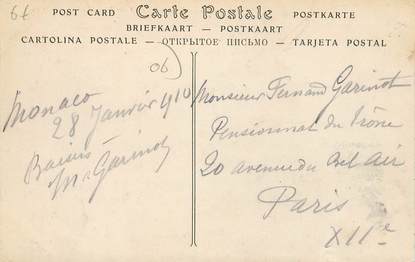 86
POST CARD Carte Postale POSTKARTE
BRIEFKAART — POSTKAART
CARTOLINA POSTALE — ОТКРЫТОЕ ПИСЬМО — TARJETA POSTAL
06
Monaco
28 Janvier 1910
Baisers
M Garinot
Monsieur Fernand Garinot
Pensionnat du Trône
20 avenue du Bel Air
Paris
XIIe